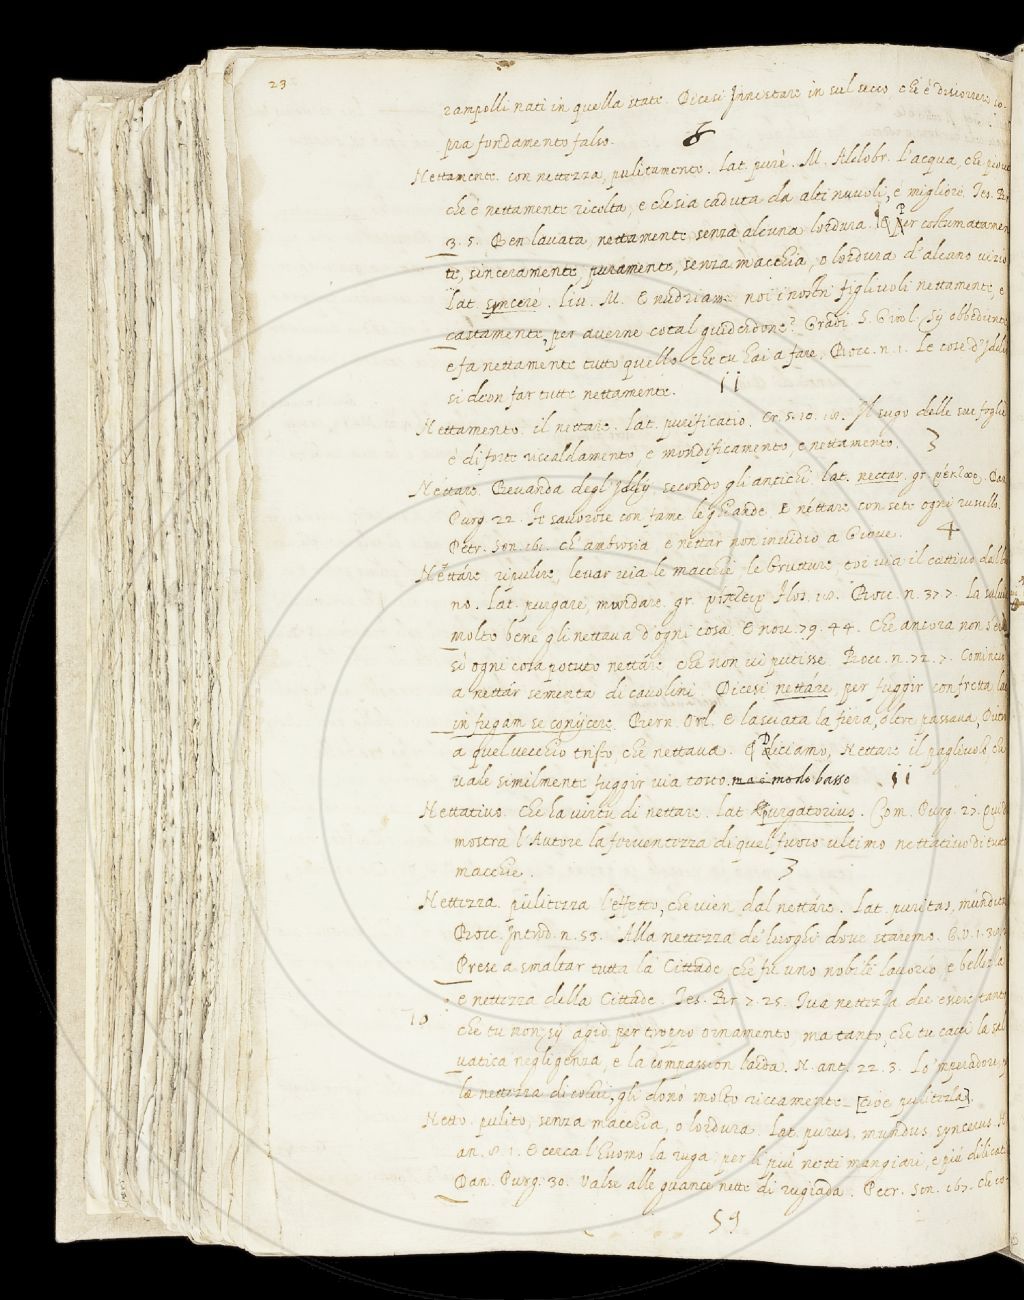 23
rampolli nati in quella state. Dicesi Innestare in sul secco, che è discorrere so-
pra fondamento falso. 6
Nettamente. con nettezza, pulitamente. Lat. purè. M. Aldobr. L'acqua, che piove
che è nettamente ricolta, e che sia caduta da alti nuvoli, e migliore. Tes. Br.
3. 5. Ben lavata nettamente senza alcuna lordura. Per costumatamen
te, sinceramente, puramente, senza macchia, o lordura d'alcuno vizio
Lat. syncerè. Liv. M. E nudriamo noi i nostri figliuoli nettamente, e
castamente, per averne cotal guiderdone? Gradi S. Girol. Sij obbediente
e fa nettamente tutto quello che tu hai a fare, Bocc. n. 1. Le cose d'Iddio
si deon far tutte nettamente. 11
Nettamento. il nettare. Lat. purificatio. Cr. 5. 10. Il sugo delle sue foglie
è di forte riscaldamento, e mondificamento, e nettamento. 3
Néttare. Bevanda degl'Iddij secondo gli antichi. Lat. nectar. gr. νέκταρ. Dan.
Purg. 22. Fe savorose con fame le ghiande. E néttare con sete ogni ruscello.
Petr. Son. 161. ch'ambrosia e nettar non invidio a Giove. 4
Nettáre. ripulire, levar via le macchie le brutture tor via il cattivo dal b
no. Lat. purgare, mundare. gr. Bocc. n. 37 7. La salvia
molto bene gli nettava d'ogni cosa. E nov. 79. 44. Che ancora non s'era
sì ogni cosa potuto nettáre che non vi putisse. Bocc. n. 72. 7. Cominciò
a nettár sementa di cavolini. Dicesi nettáre, per fuggir con fretta lat
in fugam se conijcere. Bern. Orl. E lasciata la fiera, oltre passava, Dietro
a quel vecchio tristo, che nettava. Diciamo, Nettare il pagliuolo, che
vale similmente fuggir via tosto. ma è modo basso 11
Nettativo. Che ha virtù di nettare. Lat. Purgatorius. Com. Purg. 27. Quid
mostra l'Autore la ferventezza di quel fuoco ultimo nettativo di tutte
macchie. 3
Nettezza. pulitezza l'effetto, che vien dal nettáre. Lat. puritas, mundit
Bocc. Introd. n. 53. Alla nettezza de' luoghi dove staremo. G. V. 1. 38
Prese a smaltar tutta la Cittade che fu uno nobile lavorio, e bellezza
e nettezza della Cittade. Tes. Br 7. 25. Tua nettezza dee esser tanto
10
che tu non sij agio per troppo ornamento, ma tanto, che tu cacci la sal
vatica negligenza, e la compassion laida. N. ant. 22. 3. Lo 'mperadore, p
la nettezza di colui, gli dono molto riccamente [cioè pulitezza].
Netto. pulito, senza macchia, o lordura. Lat. purus, mundus syncerus. N.
an. 8. 1. E cerca l'huomo la ruga, per li più netti mangiari, e più dilicati
Dan. Purg. 30. Valse alle guance nette di rugiada. Petr. Son. 167. Che co-
59